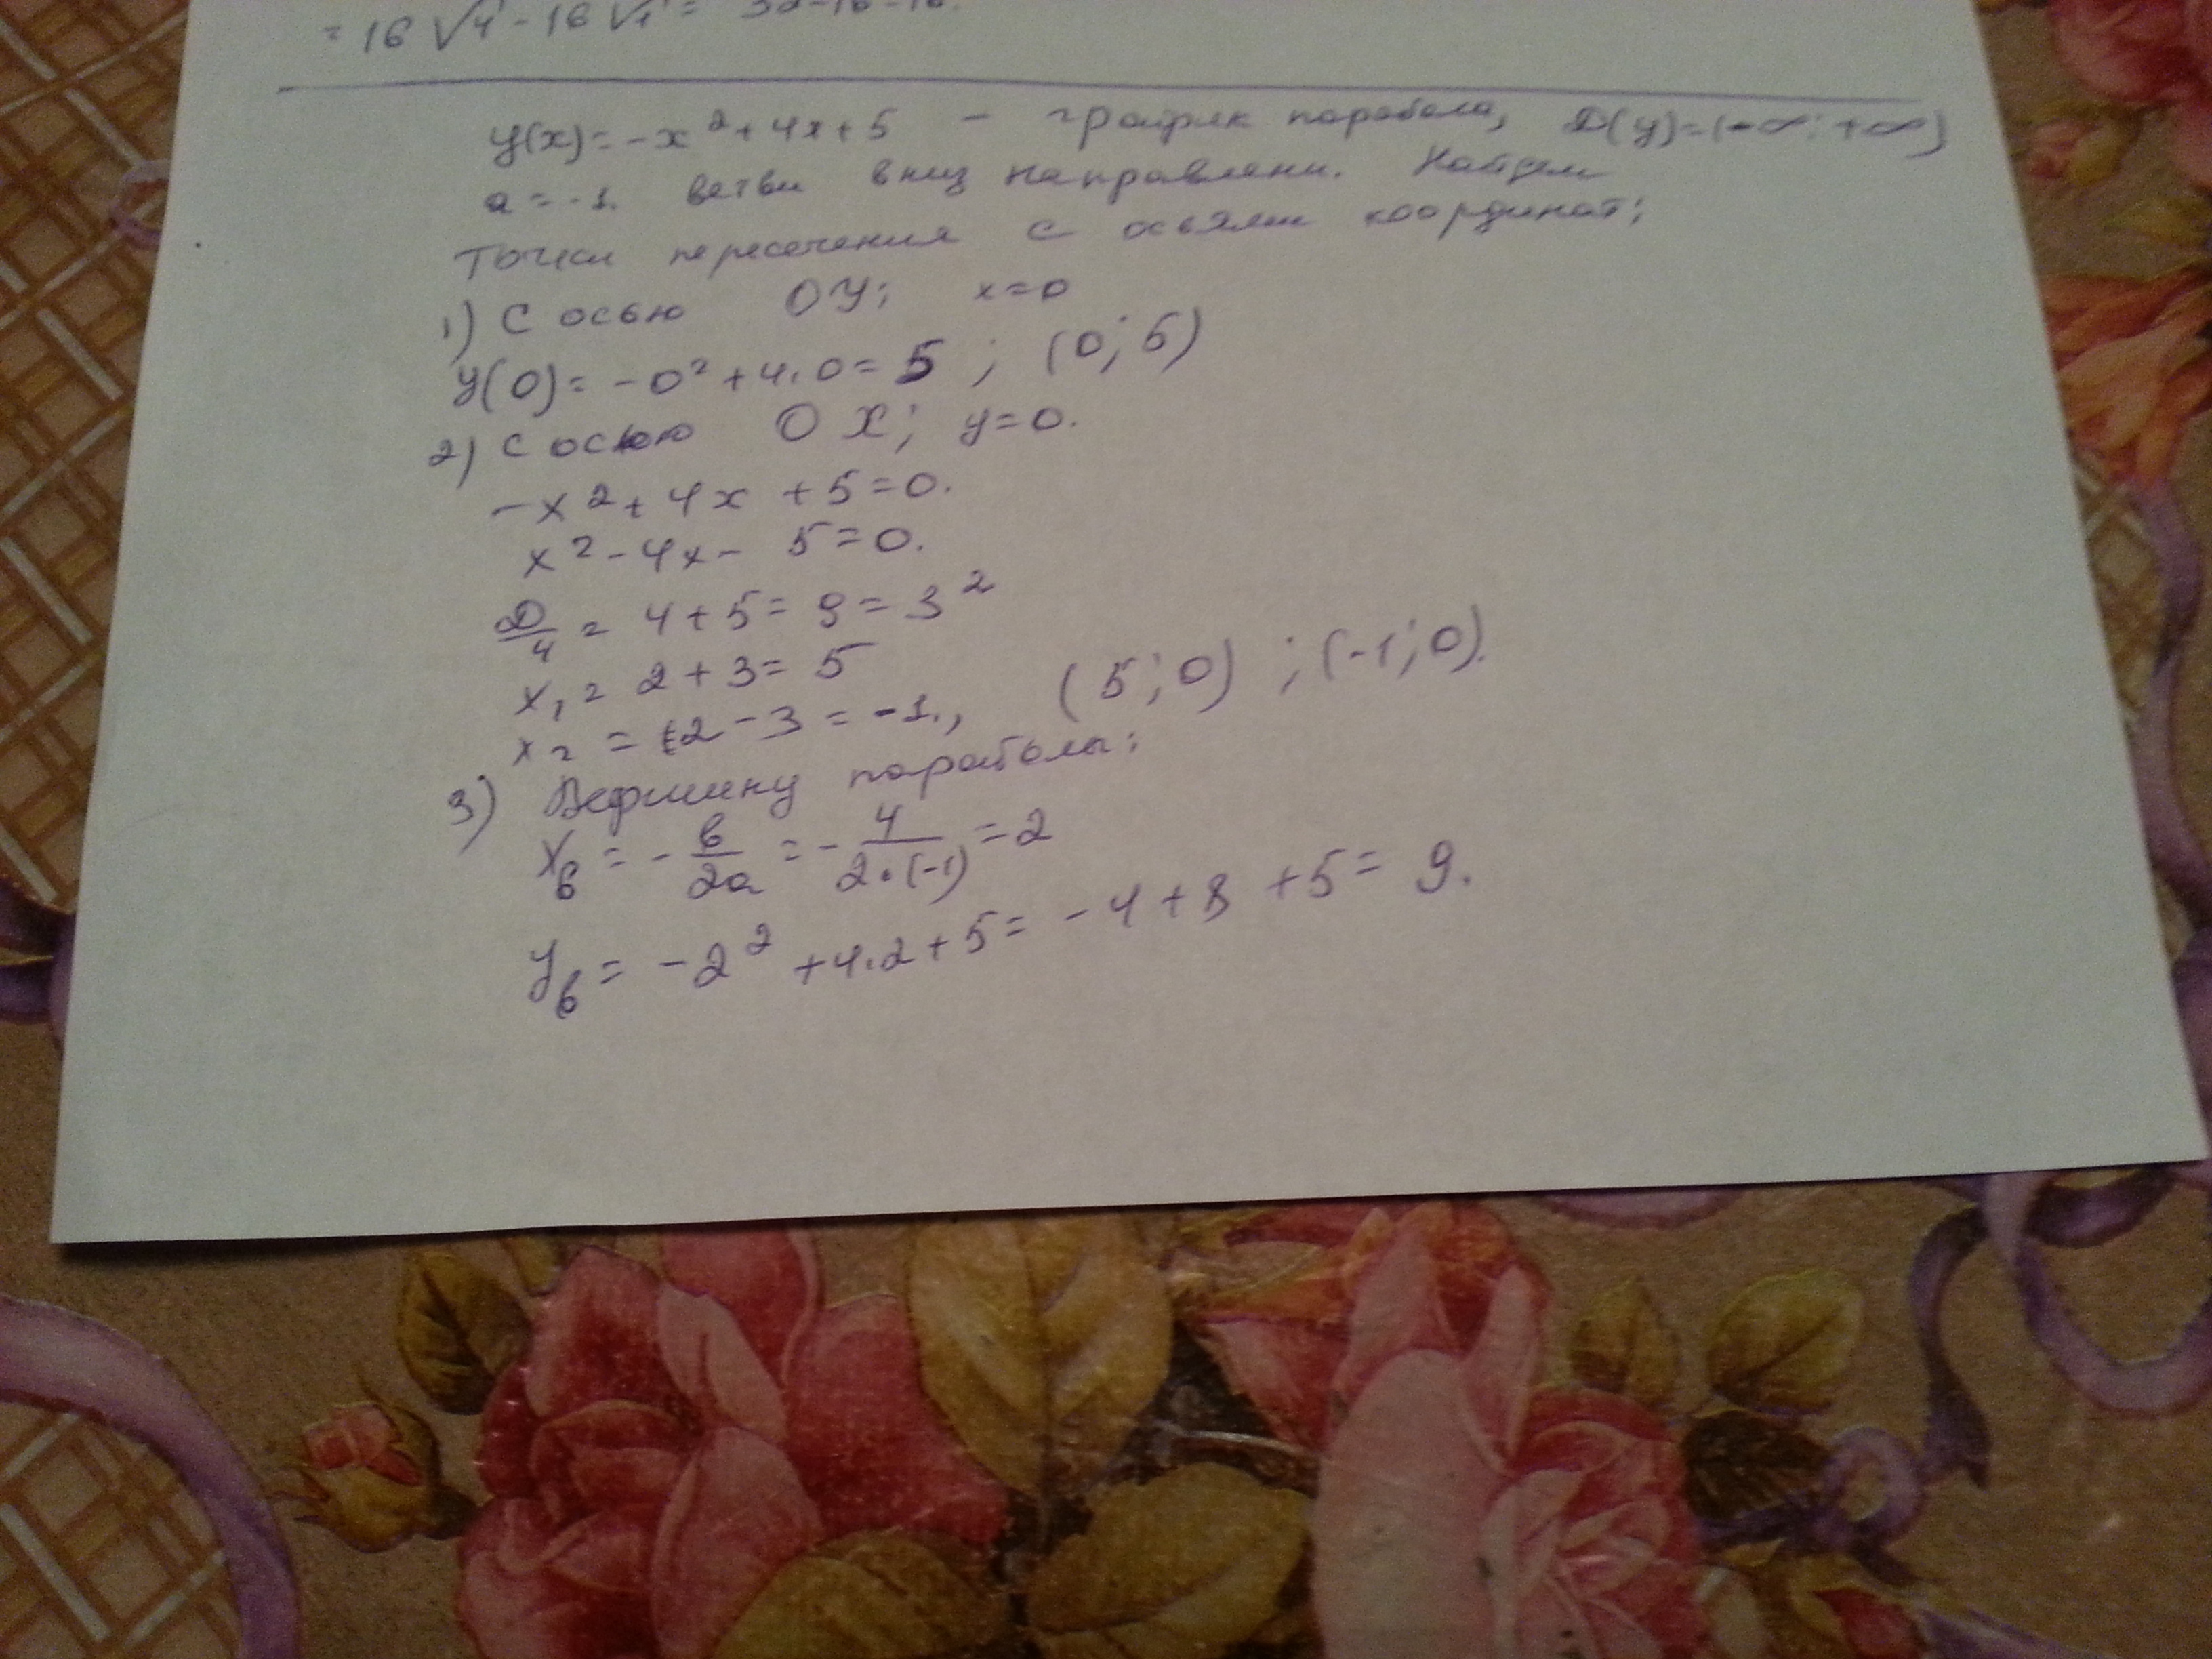 = 16 √4 - 16 √1 = 32-16=16.
y(x)=-x²+4x+5 - график парабола, D(y)=(-∞;+∞)
a=-1. ветви вниз направлени. Найдем
точки пересечения с осями координат:
1) С осью ОУ; x=0
y(0)=-0²+4·0=5; (0;5)
2) С осью ОХ; y=0.
-x²+4x+5=0.
x²-4x-5=0.
D/4=4+5=9=3²
x₁=2+3=5
x₂=2-3=-1., (5;0);(-1;0).
3) Вершину параболы:
xв=-в/2a=-4/2·(-1)=2
yв=-2²+4·2+5=-4+8+5=9.